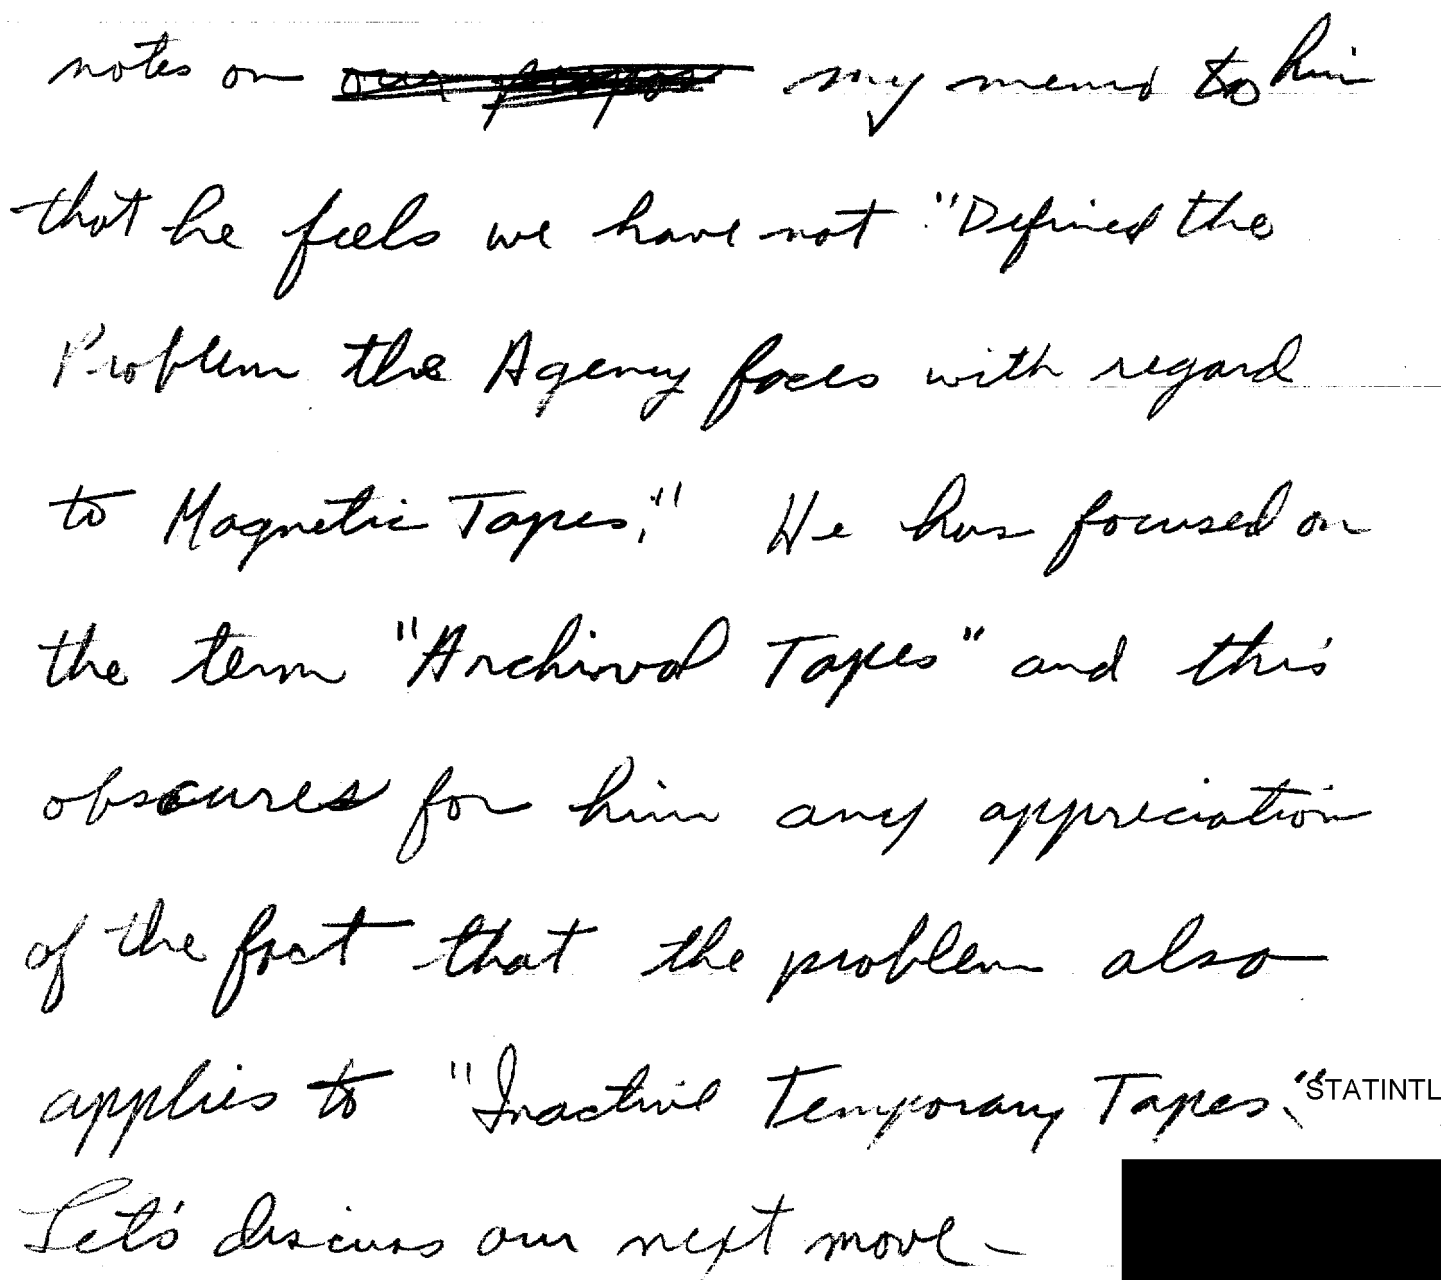 notes on my memo to him
that he feels we have not "Defined the
Problem the Agency faces with regard
to Magnetic Tapes." He has focused on
the term "Archival Tapes" and this
obscures for him any appreciation
of the fact that the problem also
applies to "Inactive Temporary Tapes."
STATINTL
Let's discuss our next move -